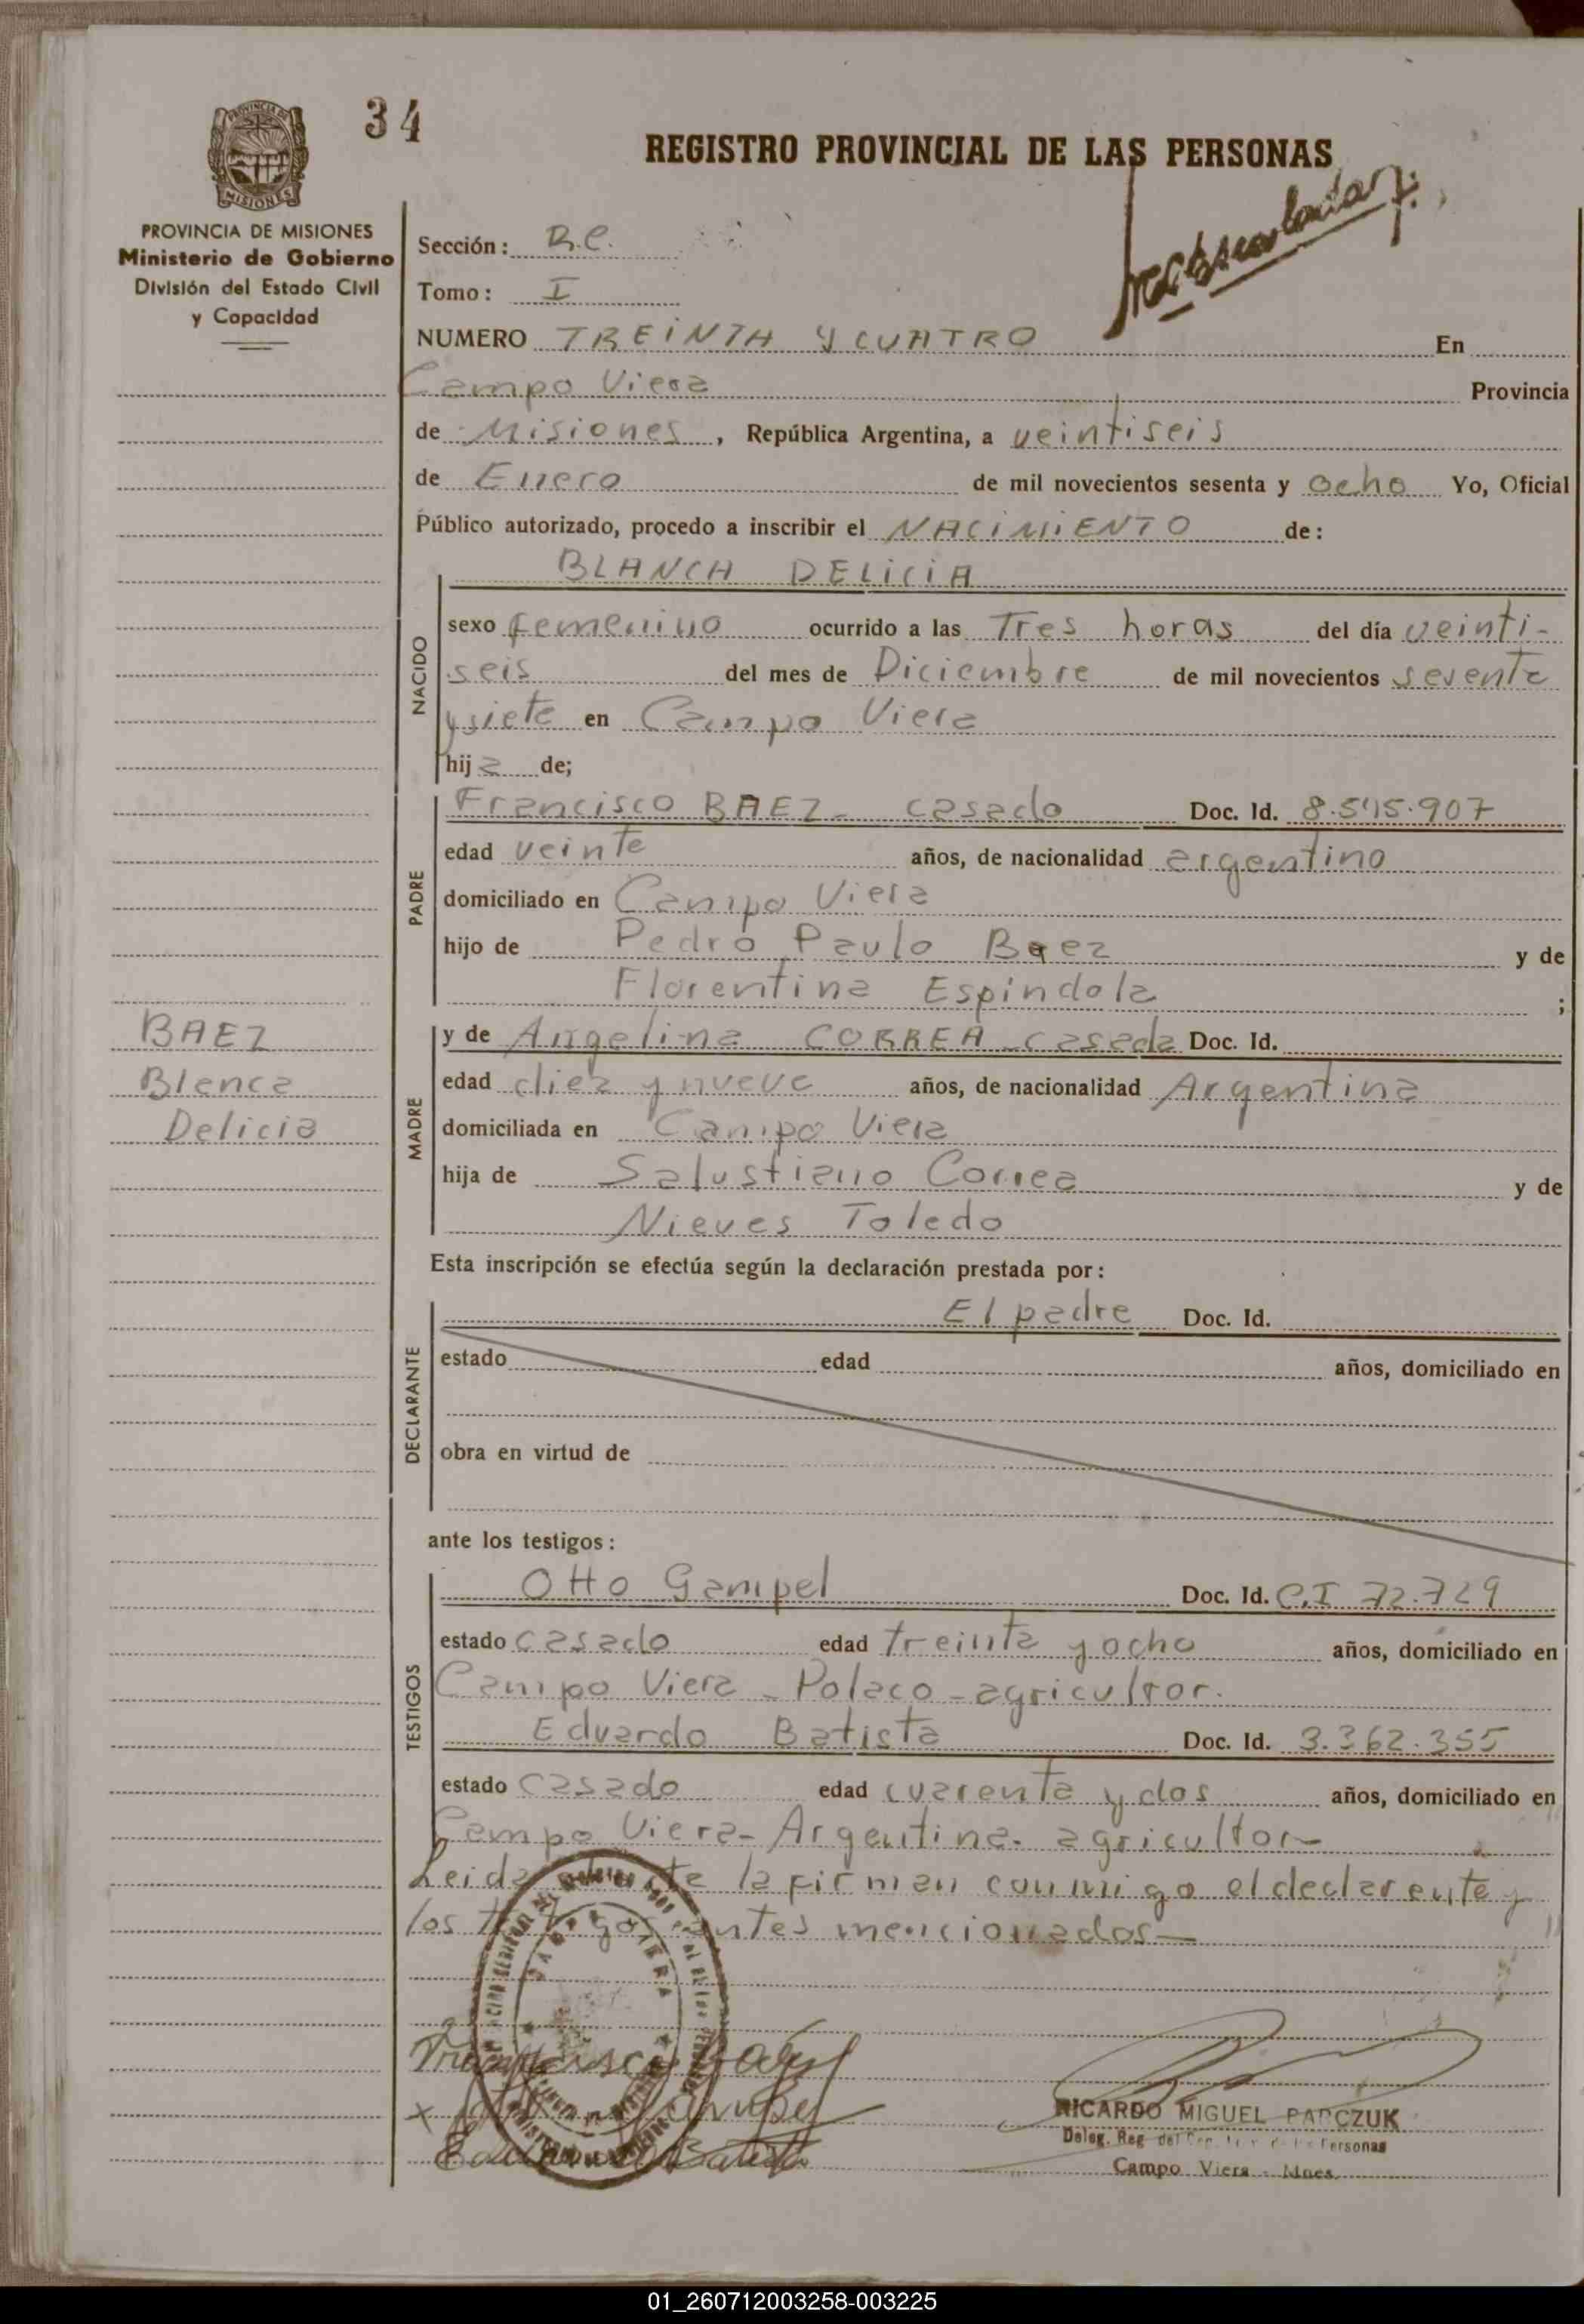 34
REGISTRO PROVINCIAL DE LAS PERSONAS
PROVINCIA DE MISIONES
Ministerio de Gobierno
División del Estado Civil
y Capacidad
Sección: R.C.
Tomo: I
NUMERO TREINTA Y CUATRO En
Campo Viera Provincia
de Misiones, República Argentina, a veintiseis
de Enero de mil novecientos sesenta y ocho Yo, Oficial
Público autorizado, procedo a inscribir el NACIMIENTO de:
BLANCA DELICIA
NACIDO
sexo femenino ocurrido a las Tres horas del día veinti-
seis del mes de Diciembre de mil novecientos sesenta
y siete en Campo Viera
hija de;
PADRE
Francisco BAEZ - casado Doc. Id. 8.545.907
edad veinte años, de nacionalidad argentino
domiciliado en Campo Viera
hijo de Pedro Paulo Baez y de
Florentina Espindola ;
BAEZ
Blanca
Delicia
MADRE
y de Angelina CORREA - casada Doc. Id.
edad diez y nueve años, de nacionalidad Argentina
domiciliada en Campo Viera
hija de Salustiano Correa y de
Nieves Toledo
Esta inscripción se efectúa según la declaración prestada por:
DECLARANTE
El padre Doc. Id.
estado edad años, domiciliado en
obra en virtud de
ante los testigos:
TESTIGOS
Otto Gampel Doc. Id. C.I 72.729
estado casado edad treinta y ocho años, domiciliado en
Campo Viera - Polaco - agricultor.
Eduardo Batista Doc. Id. 3.362.355
estado casado edad cuarenta y dos años, domiciliado en
Campo Viera - Argentina - agricultor -
Leida la firman conmigo el declarante y
los testigos antes mencionados -
Eduardo Batista
RICARDO MIGUEL PARCZUK
Deleg. Reg. del Personas
Campo Viera - Mnes.
01_260712003258-003225